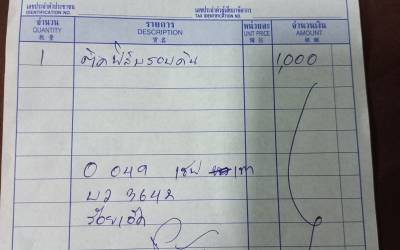 เลขประจำตัวประชาชน เลขประจำตัวผู้เสียภาษีอากร
IDENTIFICATION NO. TAX IDENTIFICATION NO.
จำนวน รายการ หน่วยละ จำนวนเงิน
QUANTITY DESCRIPTION UNIT PRICE AMOUNT
1 ติดฟิล์มรอบคัน 1,000
O 049 เชฟ เทา
บว 3642
ร้อยเอ็ด